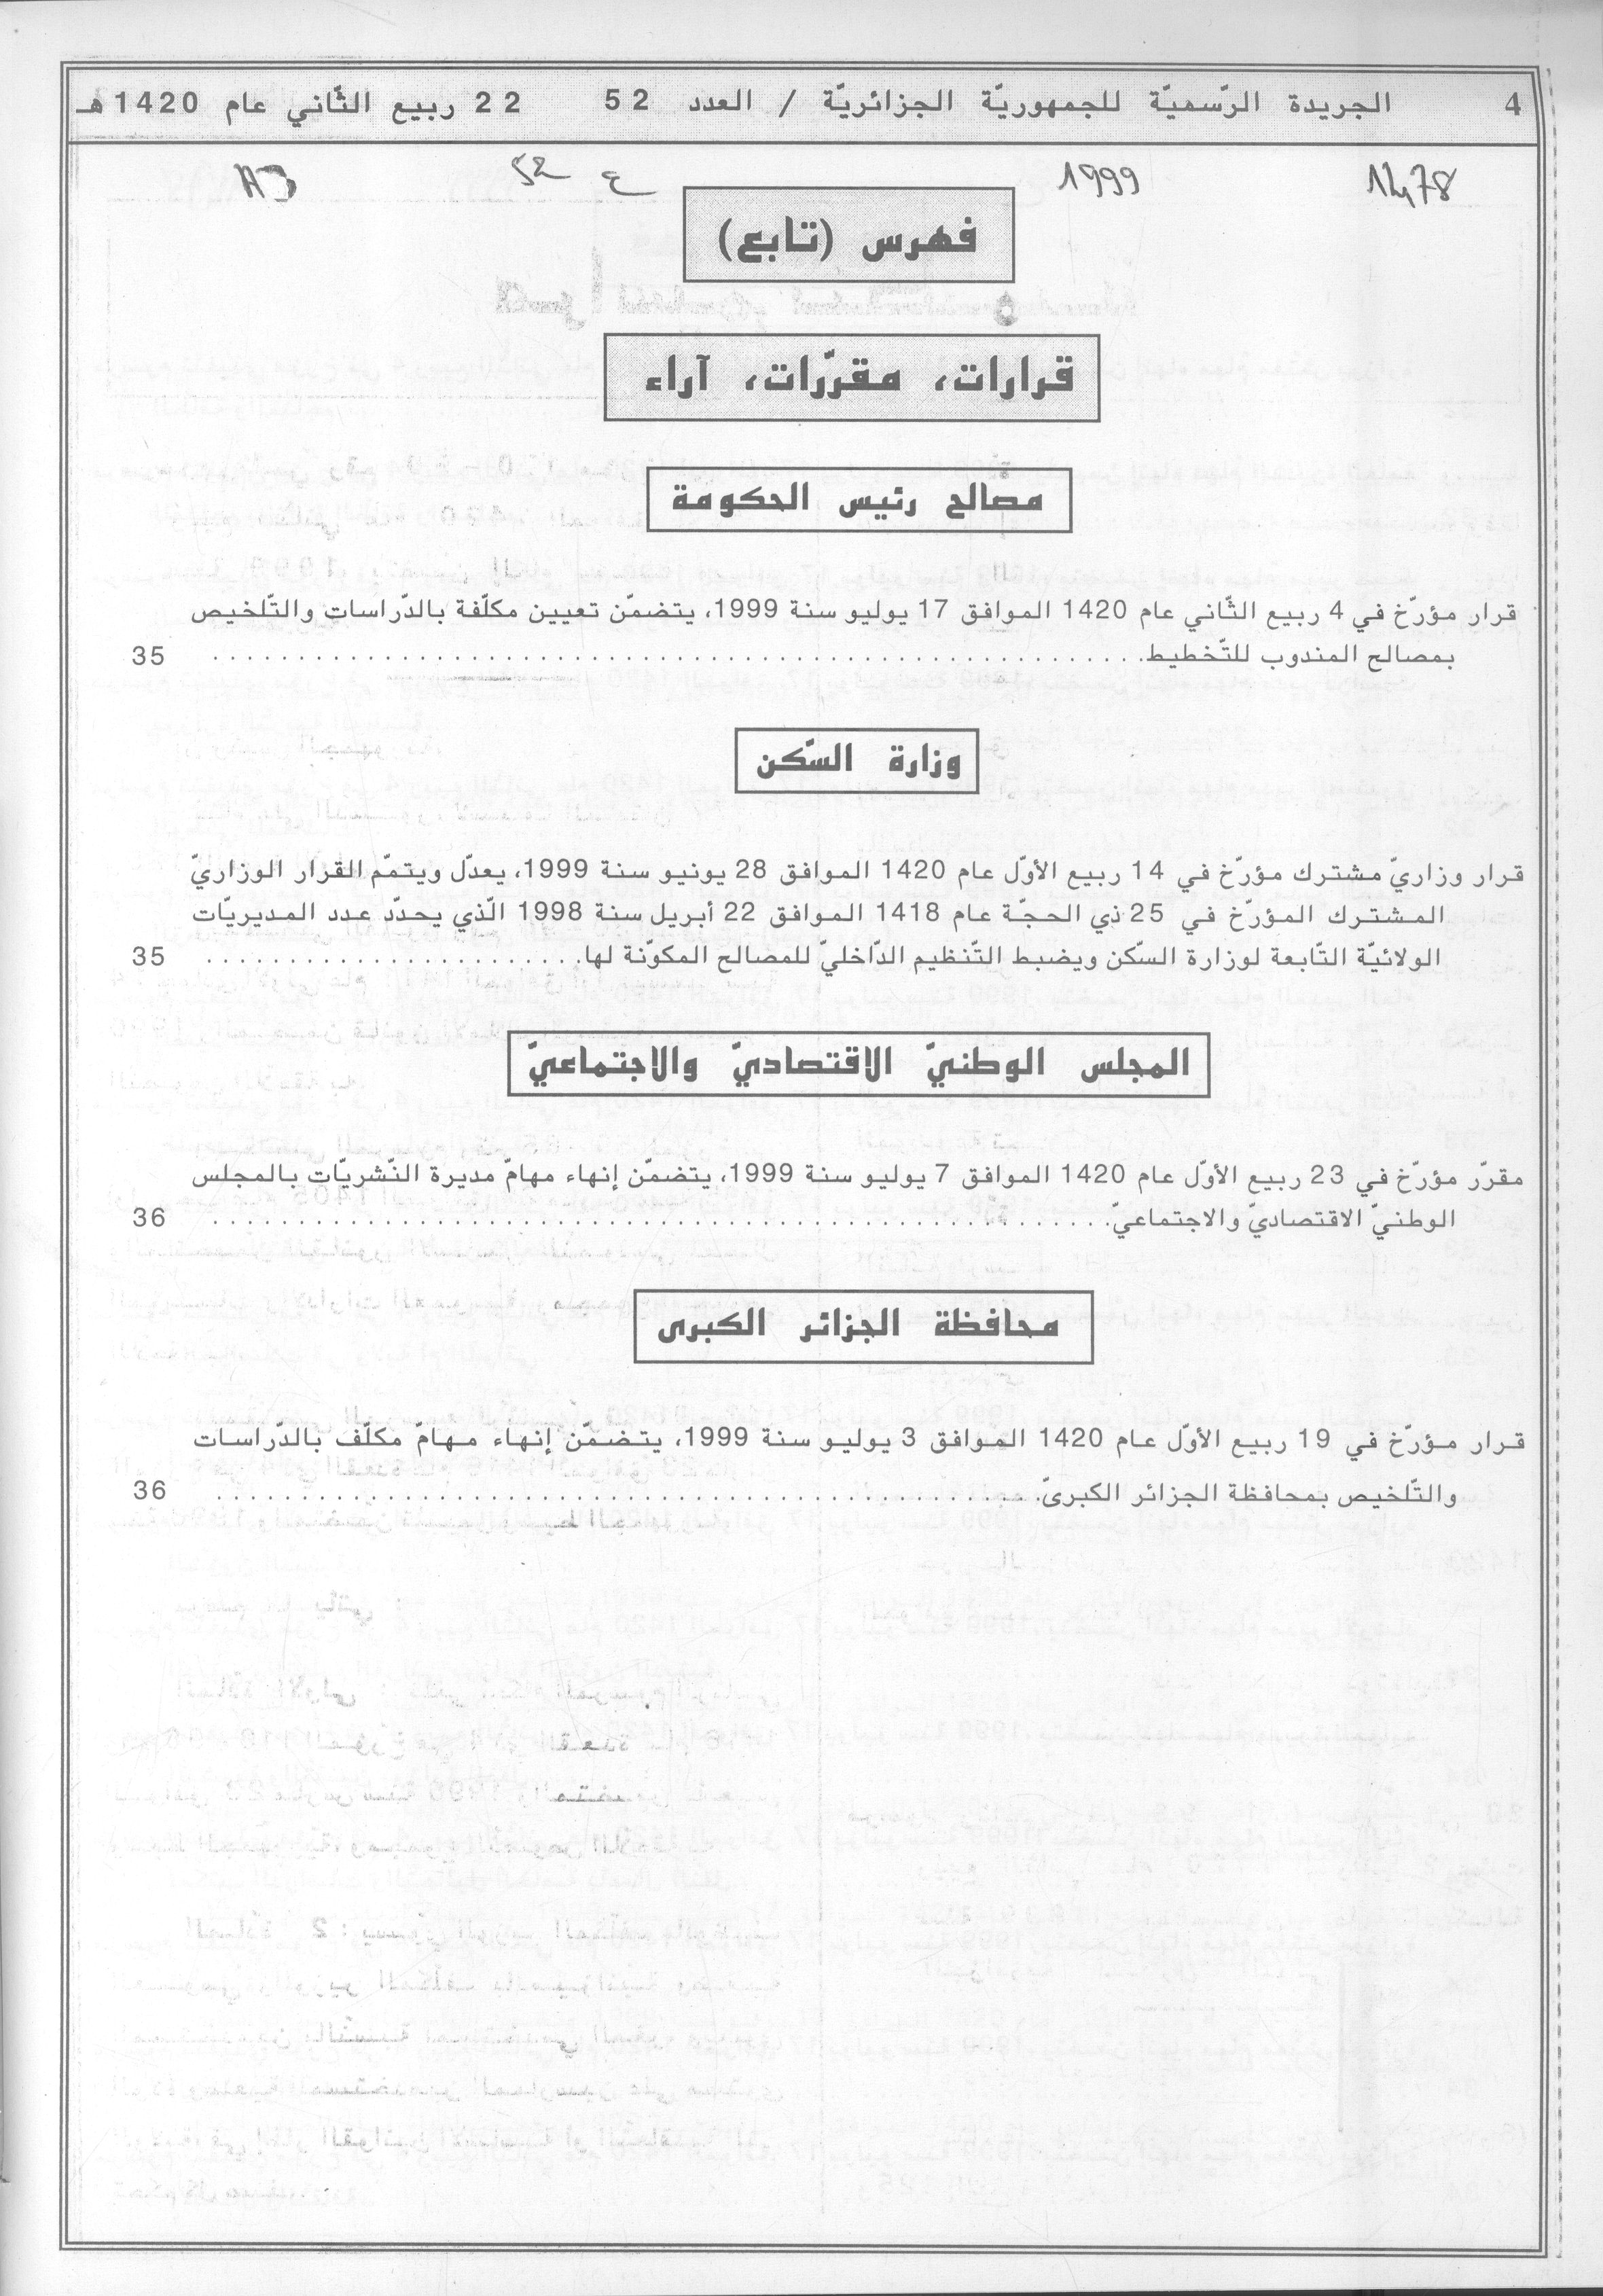 4 الجريدة الرّسميّة للجمهوريّة الجزائريّة / العدد 52 22 ربيع الثّاني عام 1420 هـ
1999 ع 52
فهرس (تابع)
قرارات، مقرّرات، آراء
مصالح رئيس الحكومة
قرار مؤرّخ في 4 ربيع الثّاني عام 1420 الموافق 17 يوليو سنة 1999، يتضمّن تعيين مكلّفة بالدّراسات والتّلخيص
بمصالح المندوب للتّخطيط. 35
وزارة السّكن
قرار وزاريّ مشترك مؤرّخ في 14 ربيع الأوّل عام 1420 الموافق 28 يونيو سنة 1999، يعدّل ويتمّم القرار الوزاريّ
المشترك المؤرّخ في 25 ذي الحجّة عام 1418 الموافق 22 أبريل سنة 1998 الّذي يحدّد عدد المديريّات
الولائيّة التّابعة لوزارة السّكن ويضبط التّنظيم الدّاخليّ للمصالح المكوّنة لها. 35
المجلس الوطنيّ الاقتصاديّ والاجتماعيّ
مقرّر مؤرّخ في 23 ربيع الأوّل عام 1420 الموافق 7 يوليو سنة 1999، يتضمّن إنهاء مهامّ مديرة النّشريّات بالمجلس
الوطنيّ الاقتصاديّ والاجتماعيّ. 36
محافظة الجزائر الكبرى
قرار مؤرّخ في 19 ربيع الأوّل عام 1420 الموافق 3 يوليو سنة 1999، يتضمّن إنهاء مهامّ مكلّف بالدّراسات
والتّلخيص بمحافظة الجزائر الكبرى. 36